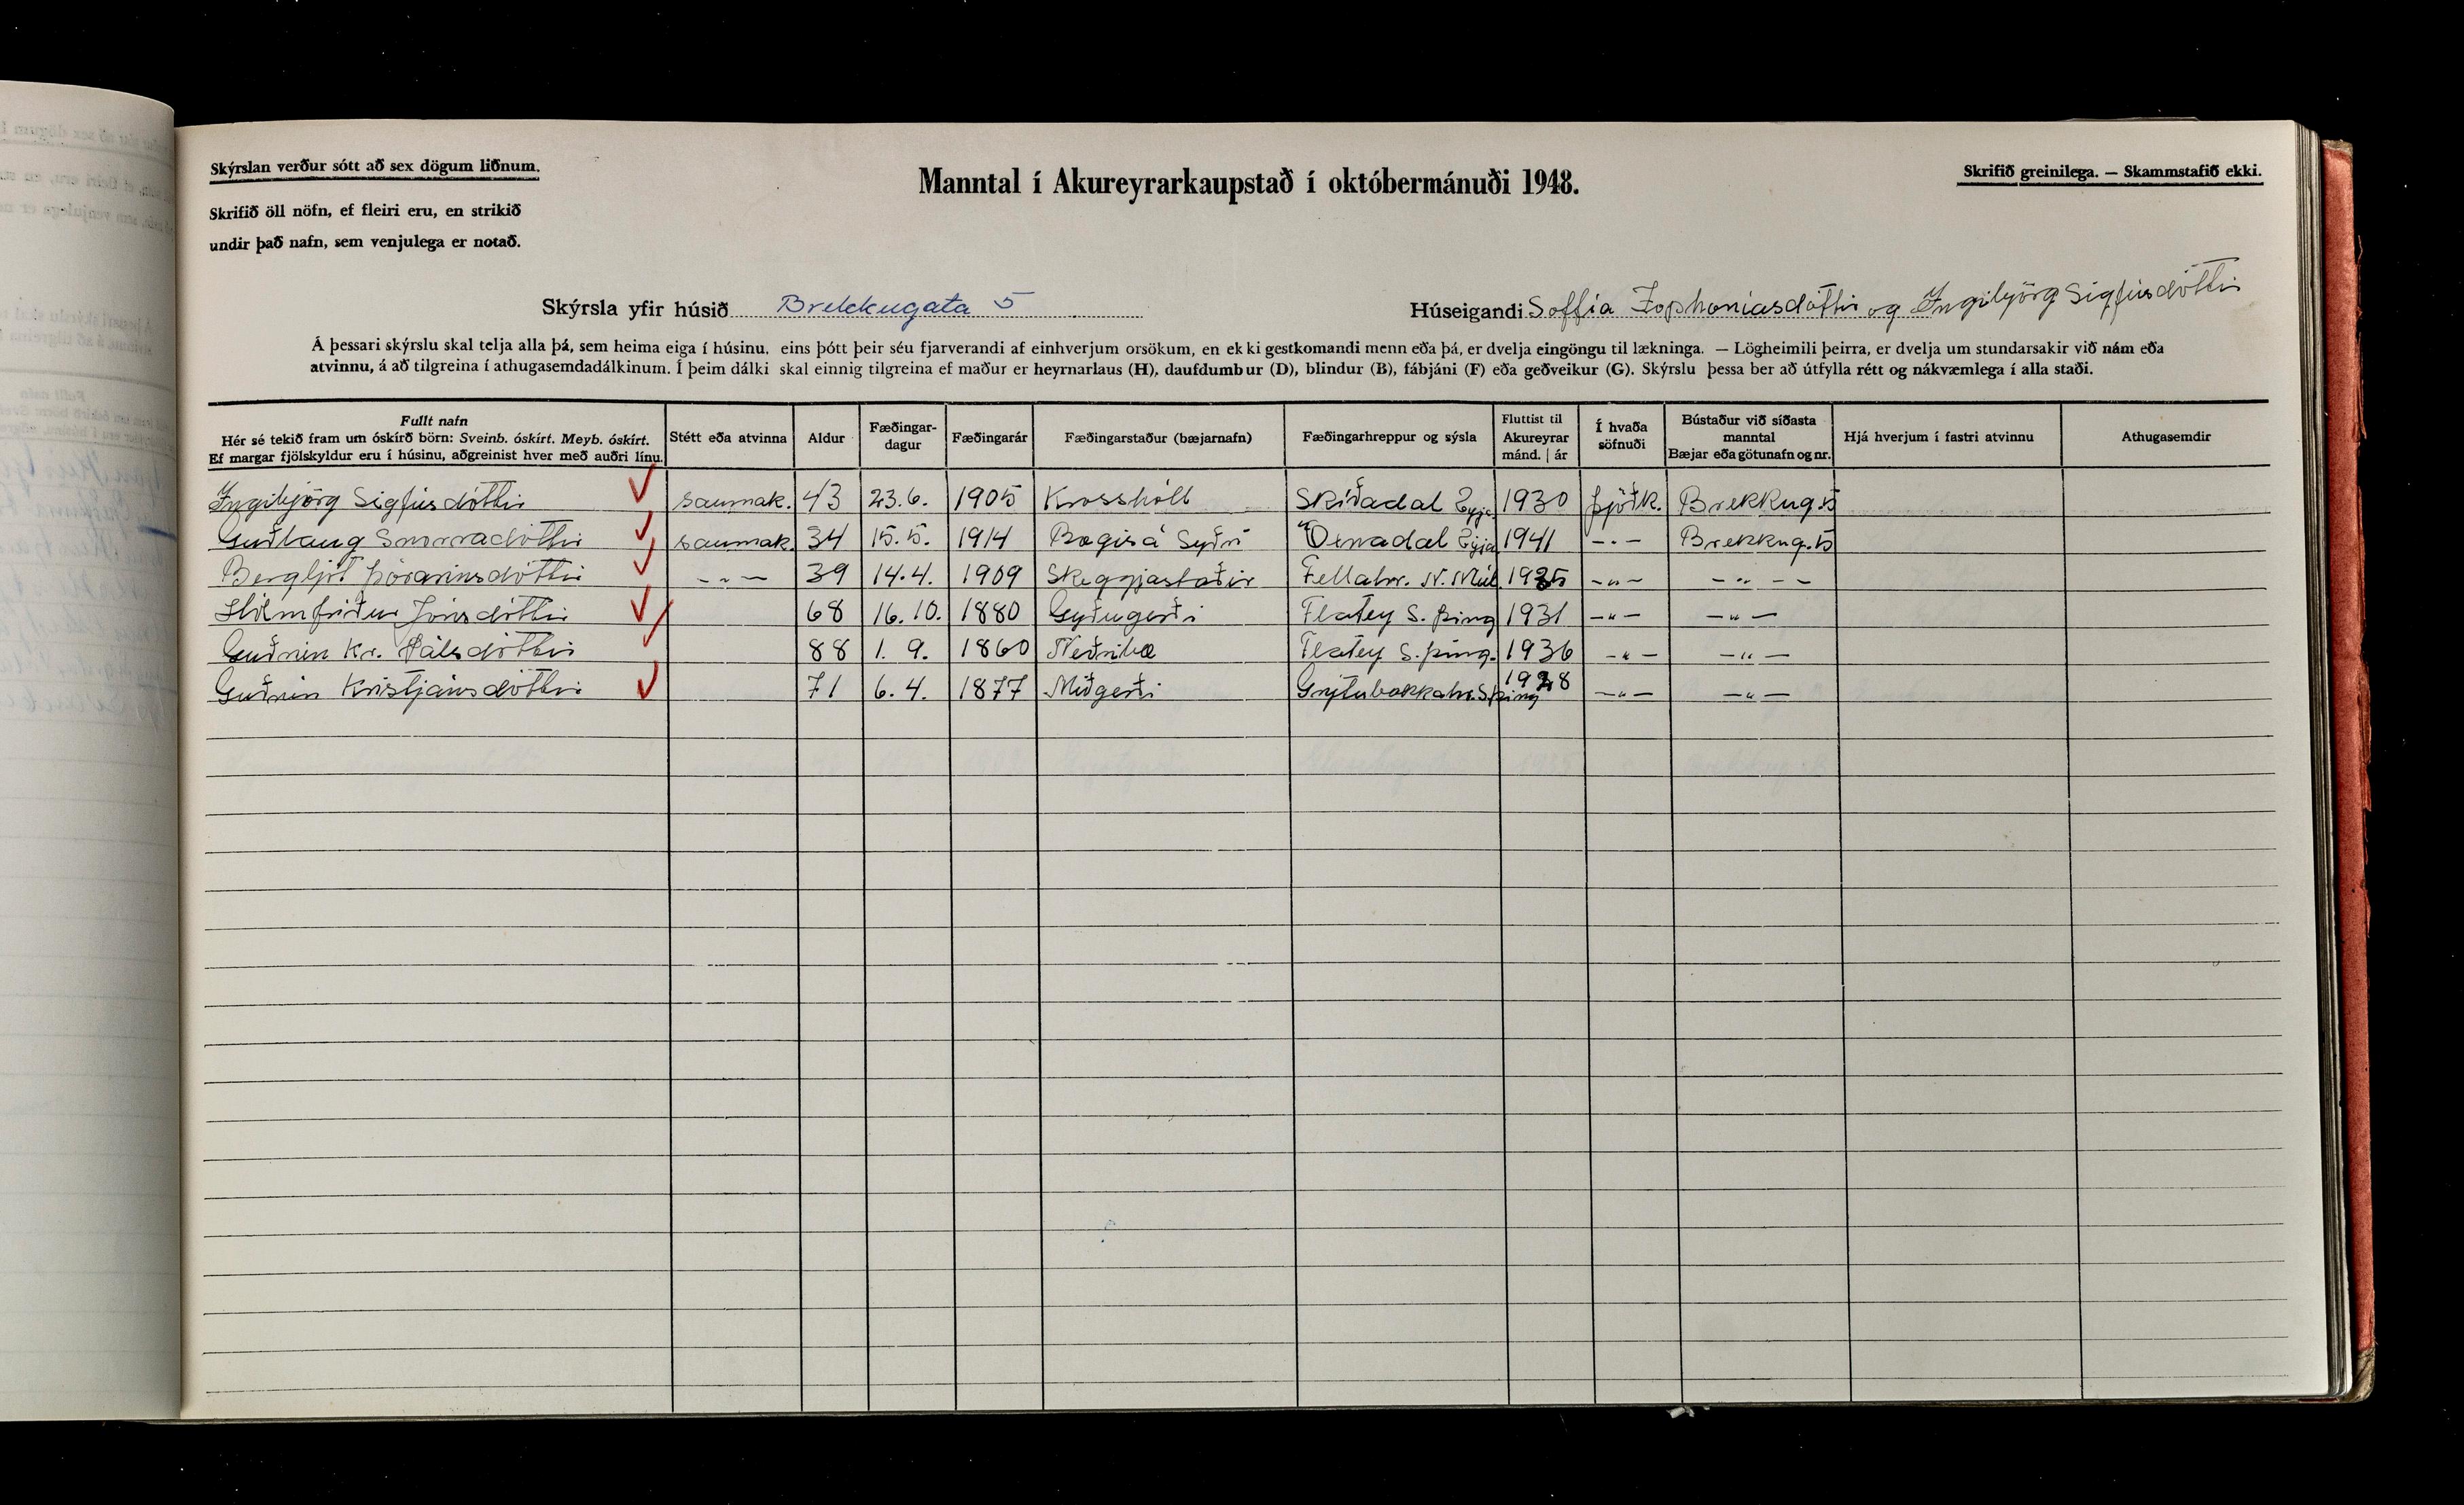 Skýrslan verður sótt að sex dögum liðnum.
Skrifið öll nöfn, ef fleiri eru, en strikið
undir það nafn, sem venjulega er notað.
Manntal í Akureyrarkaupstað í októbermánuði 1948.
Skrifið greinilega. — Skammstafið ekki.
Skýrsla yfir húsið Brekkugata 5
Húseigandi Soffía Zophoníasdóttir og Ingibjörg Sigfúsdóttir
Á þessari skýrslu skal telja alla þá, sem heima eiga í húsinu, eins þótt þeir séu fjarverandi af einhverjum orsökum, en ekki gestkomandi menn eða þá, er dvelja eingöngu til lækninga. — Lögheimili þeirra, er dvelja um stundarsakir við nám eða
atvinnu, á að tilgreina í athugasemdadálkinum. Í þeim dálki skal einnig tilgreina ef maður er heyrnarlaus (H), daufdumbur (D), blindur (B), fábjáni (F) eða geðveikur (G). Skýrslu þessa ber að útfylla rétt og nákvæmlega í alla staði.
Fullt nafn
Hér sé tekið fram um óskírð börn: Sveinb. óskírt. Meyb. óskírt.
Ef margar fjölskyldur eru í húsinu, aðgreinist hver með auðri línu.
Stétt eða atvinna
Aldur
Fæðingar-
dagur
Fæðingarár
Fæðingarstaður (bæjarnafn)
Fæðingarhreppur og sýsla
Fluttist til
Akureyrar
mánd. | ár
Í hvaða
söfnuði
Bústaður við síðasta
manntal
Bæjar eða götunafn og nr.
Hjá hverjum í fastri atvinnu
Athugasemdir
Ingibjörg Sigfúsdóttir saumak. 43 23.6. 1905 Krosshóll Skíðadal Eyja 1930 þjóðk. Brekkug. 5
Guðlaug Snorradóttir saumak. 34 15.5. 1914 Bægisá Syðri Öxnadal Eyja 1941 -"- Brekkug. 5
Bergljót Þórarinsdóttir -"- 39 14.4. 1909 Skeggjastaðir Fellahr. N. Múl. 1935 -"- -"-
Hólmfríður Jónsdóttir 68 16.10. 1880 Gyðugerði Flatey S. Þing 1931 -"- -"-
Guðrún Kr. Pálsdóttir 88 1. 9. 1860 Neðribæ Flatey S. Þing. 1936 -"- -"-
Guðrún Kristjánsdóttir 71 6.4. 1877 Miðgerði Grýtubakkahr. S. Þing 1928 -"- -"-